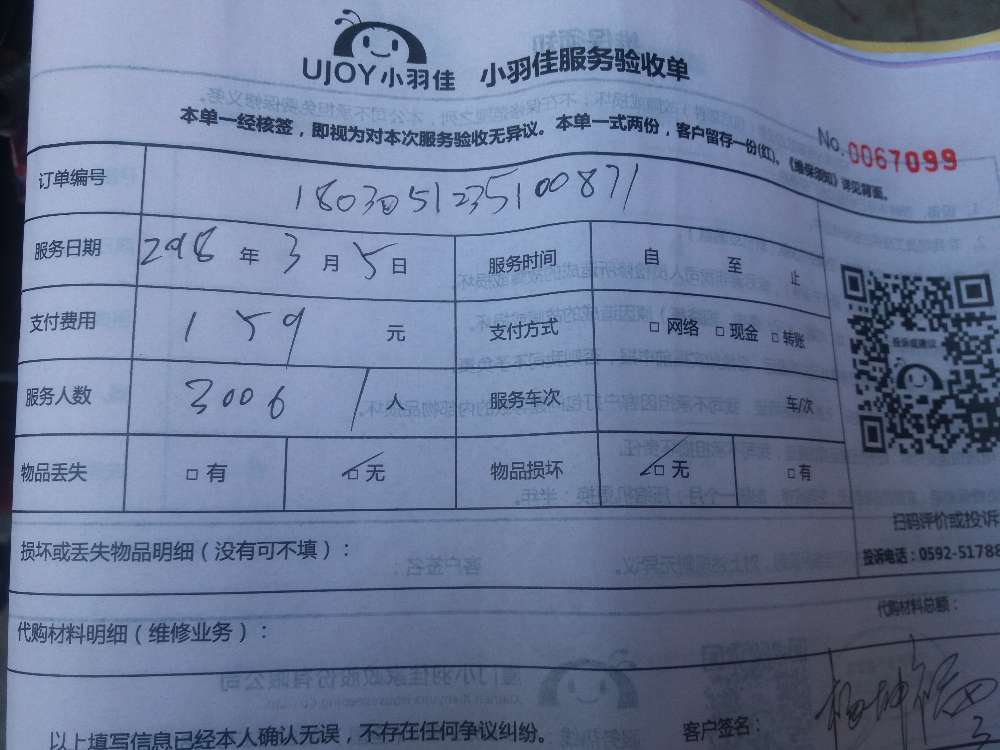 UJOY小羽佳 小羽佳服务验收单
本单一经核签，即视为对本次服务验收无异议。本单一式两份，客户留存一份(红)。《维保须知》详见背面。
No.0067099
订单编号 1803051235100871
服务日期 2018 年 3 月 5 日 服务时间 自 至 止
支付费用 159 元 支付方式 □ 网络 □ 现金 □ 转账
服务人数 3006 1 人 服务车次 车/次
物品丢失 □ 有 □ 无 物品损坏 □ 无 □ 有
投诉或建议
扫码评价或投诉
投诉电话：0592-51788
损坏或丢失物品明细（没有可不填）：
代购材料总额：
代购材料明细（维修业务）：
以上填写信息已经本人确认无误，不存在任何争议纠纷。
客户签名：